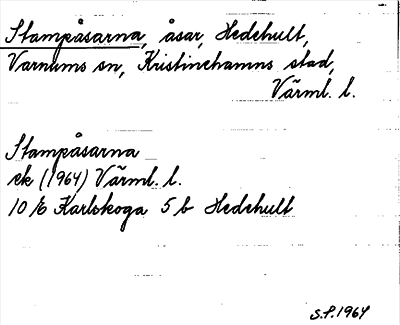 Stampåsarna, åsar, Hedehult,
Varnums sn, Kristinehamns stad,
Värml. l.
Stampåsarna
ek (1964) Värml. l.
10 E Karlskoga 5 b Hedehult
S.P. 1964